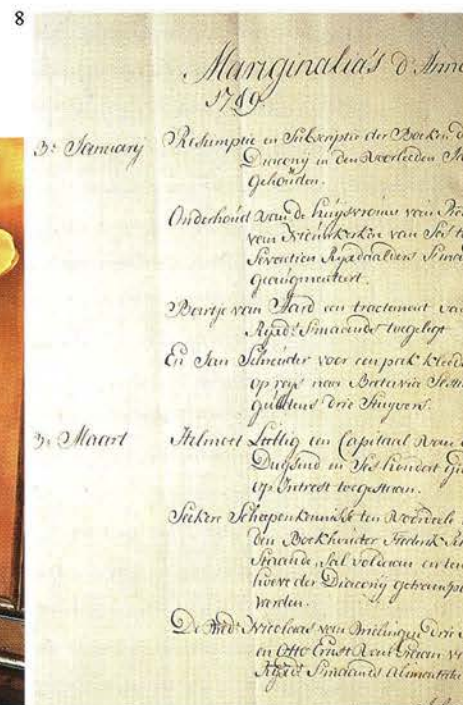 8
Mariginalia's d' Anno
1789.
3: January Resumptie en Subscriptie der Boeken de
Diacony in den voorleeden
gehouden.
Onderhoud van de huysvrouw van
van Nieuwkerken van Ses t
Seventien Ryxdaalders Smaa
geaugmenteert.
van Aard een tractement van
Ryxd:s Smaands toegelegt
En Jan Schreuder voor een pak kleed
op reys naar Batavia Sest
guldens drie Stuyvers.
3: Maart een Capitaal van
Duysend en Ses hondert Gu
op Intrest toegestaan.
Seekere Schepenkennisse ten voordeele
den Boekhouder Frederik
Staande, Sal voldaan en ten
hoeve der Diacony
werden.
Nicolaas van drie
en Otto Ernst
Ryxd:s Smaands